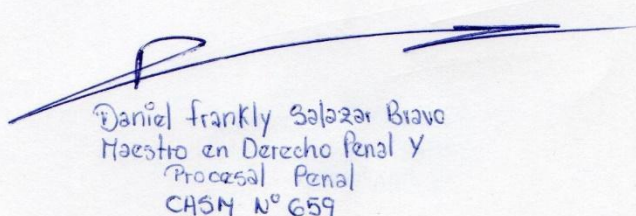 Daniel frankly Salazar Bravo
Maestro en Derecho Penal Y
Procesal Penal
CASM N° 659